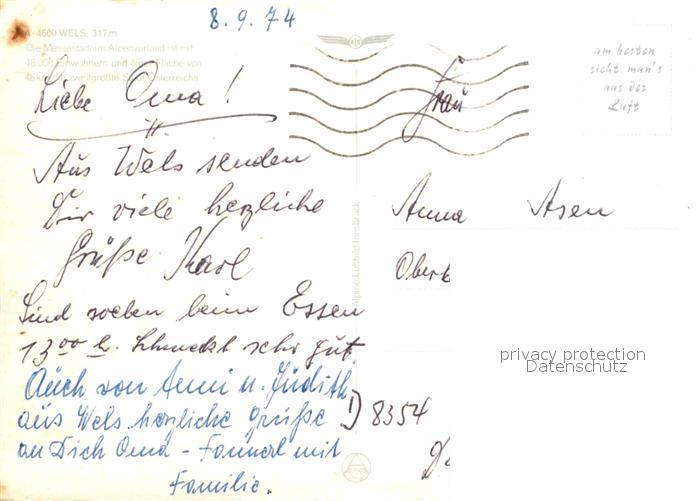 8.9.74
A-4600 WELS, 317 m
Die Messestadt im Alpenvorland ist mit
48.000 Einwohnern und einer Fläche von
46 km² zweitgrößte Stadt Österreichs
Liebe Oma!
Aus Wels senden
Dir viele herzliche
Grüße Karl
Sind soeben beim Essen
13⁰⁰ h. Schmeckt sehr gut.
Auch von Anni u. Judith
aus Wels herzliche Grüße
an Dich Oma - mit
Familie.
Alpine Luftbild Innsbruck
am besten
sieht man's
aus der
Luft
Frau
Anna Asen
Ober
8354
privacy protection
Datenschutz